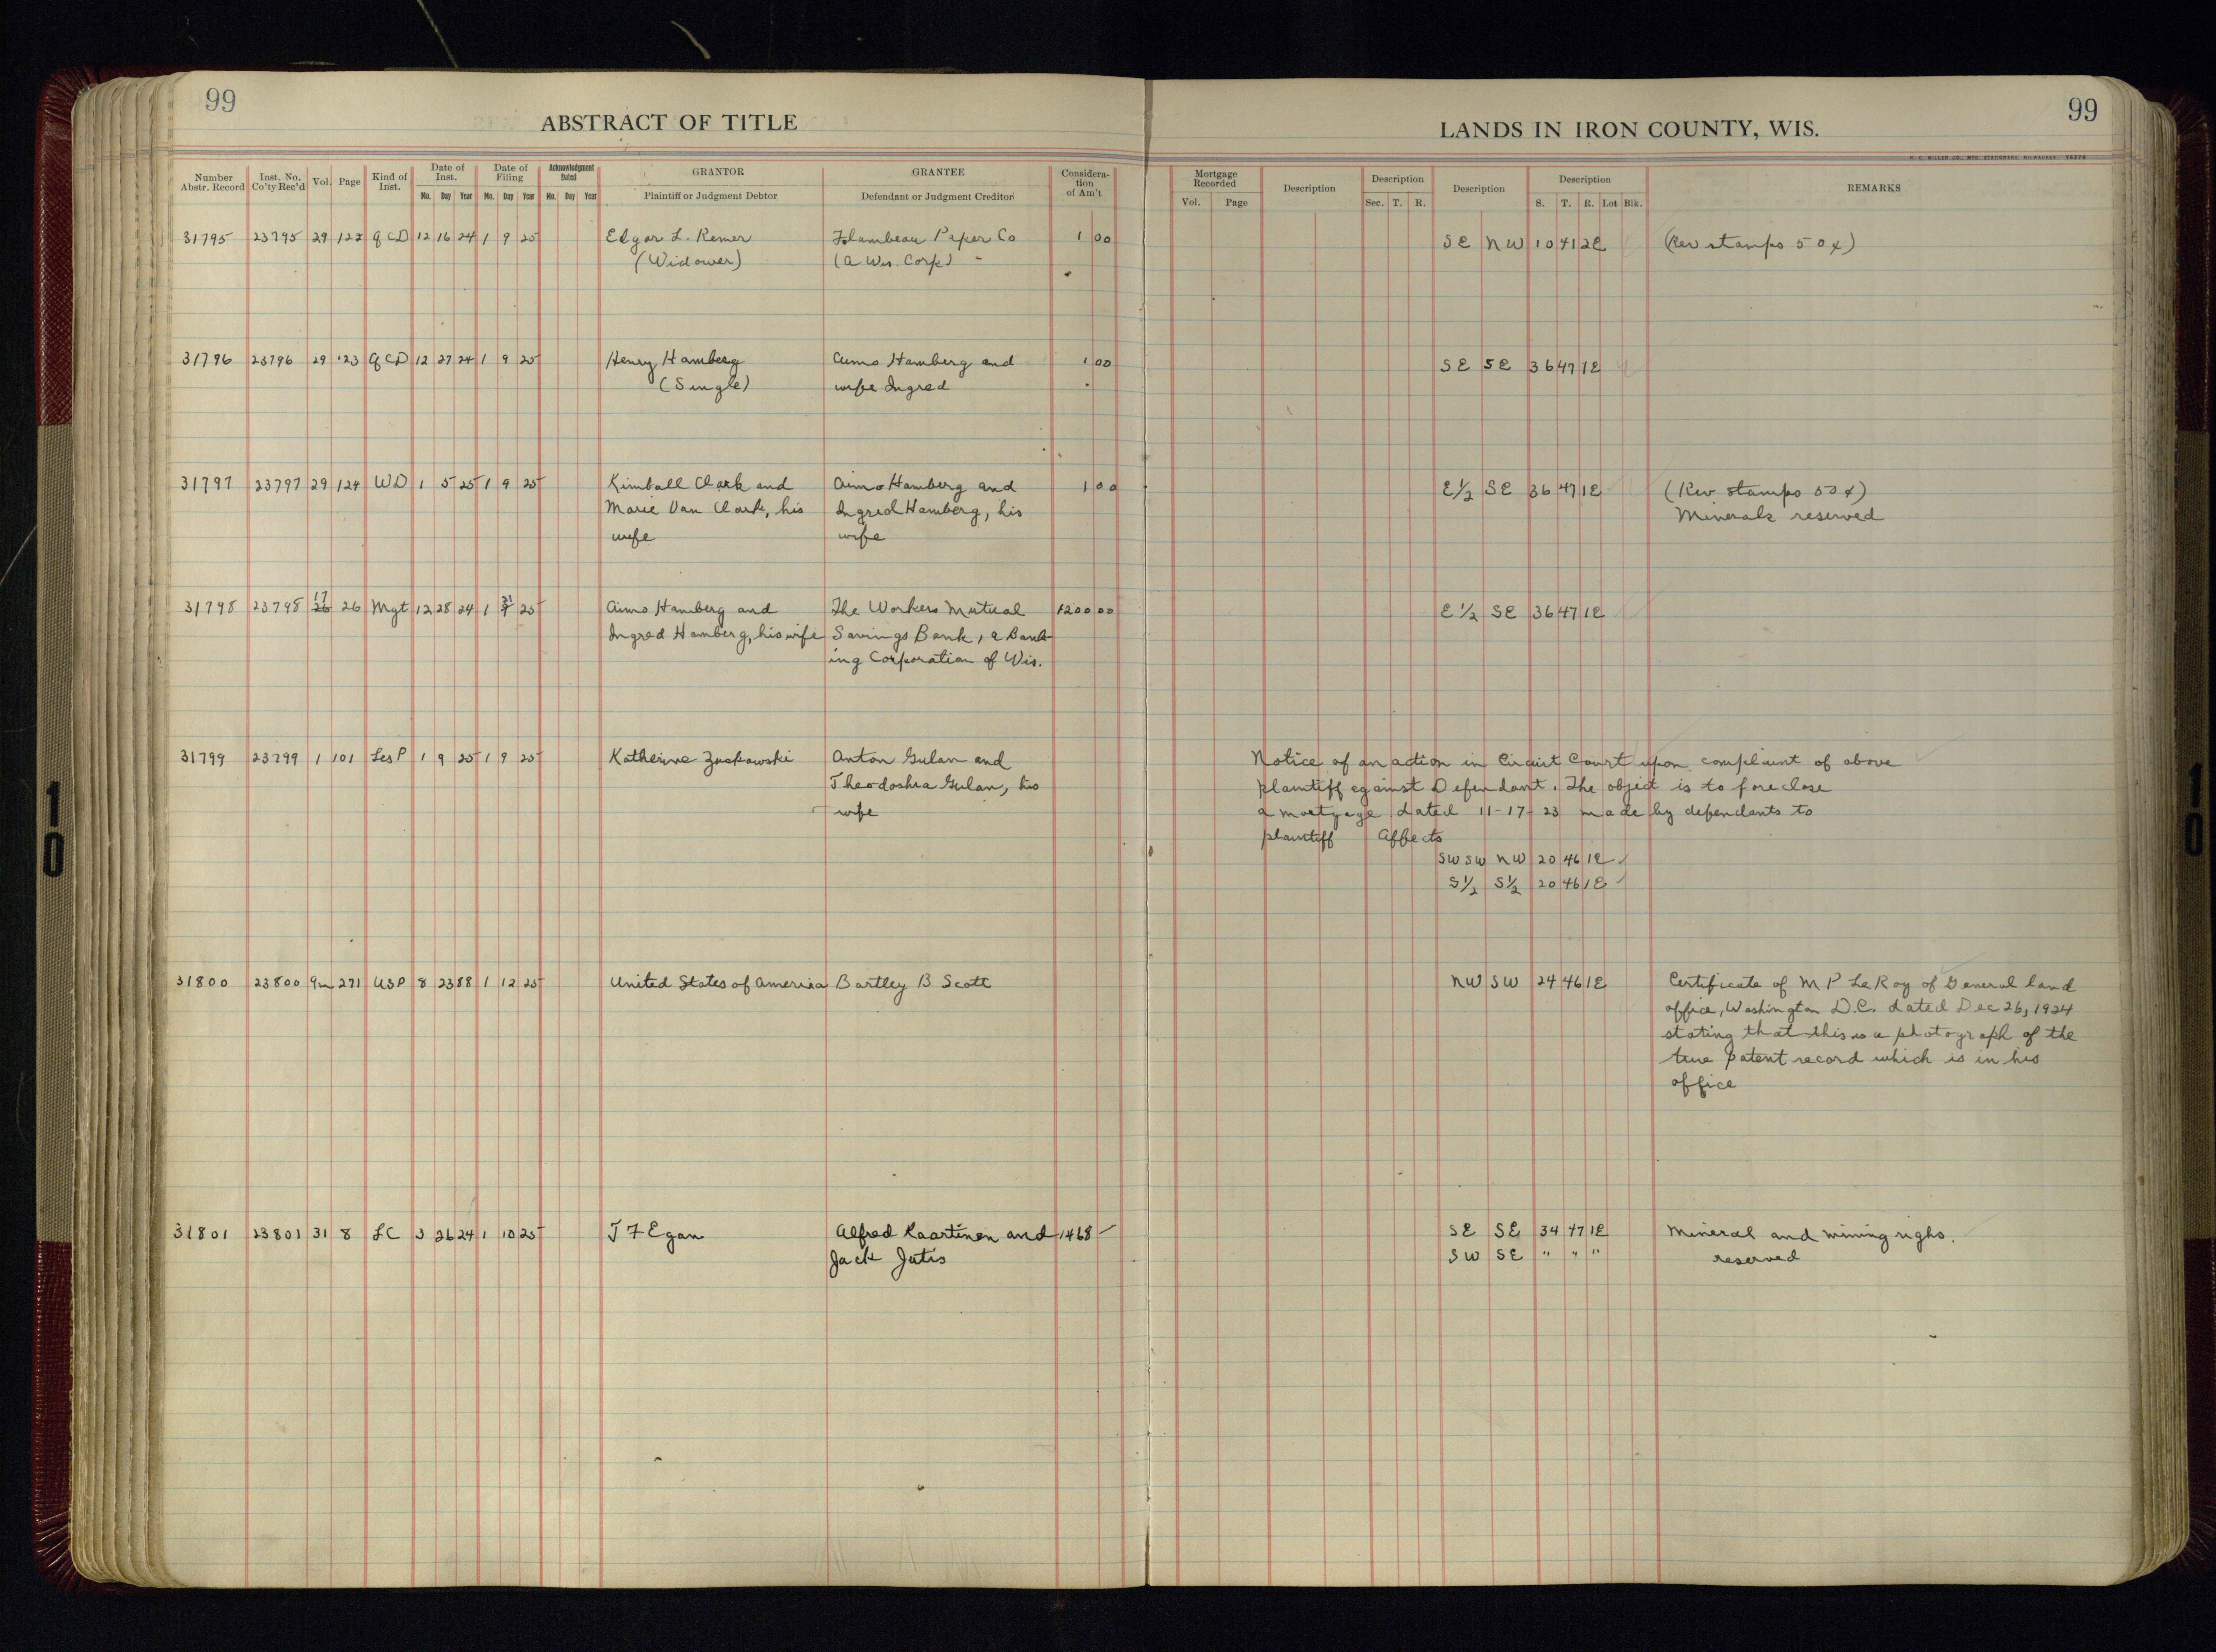 99
ABSTRACT OF TITLE
Number Abstr. Record Inst. No. Co'ty Rec'd Vol. Page Kind of Inst. Date of Inst. Mo. Day Year Date of Filing Mo. Day Year Acknowledgment Dated Mo. Day Year GRANTOR Plaintiff or Judgment Debtor GRANTEE Defendant or Judgment Creditor Considera-tion of Am't
LANDS IN IRON COUNTY, WIS.
99
H. C. MILLER CO., MFG. STATIONERS, MILWAUKEE
Mortgage Recorded Vol. Page Description Description Sec. T. R. Description Description S. T. R. Lot Blk. REMARKS
31795 23795 29 122 QCD 12 16 24 1 9 25 Edgar L. Remer Flambeau Paper Co 1 00 SE NW 10 41 2E (Rev stamps 50¢)
(Widower) (A Wis. Corp)
31796 23796 29 123 QCD 12 27 24 1 9 25 Henry Hamberg Aimo Hamberg and 1 00 SE SE 36 47 1E
(Single) wife Ingred
31797 23797 29 124 WD 1 5 25 1 9 25 Kimball Clark and Aimo Hamberg and 1 00 E½ SE 36 47 1E (Rev stamps 50¢)
Marie Van Clark, his Ingred Hamberg, his Minerals reserved
wife wife
31798 23798 17 26 26 Mgt 12 28 24 1 9 25 Aimo Hamberg and The Workers Mutual 1200 00 E½ SE 36 47 1E
Ingred Hamberg, his wife Savings Bank, a Bank-
ing Corporation of Wis.
31799 23799 1 101 LesP 1 9 25 1 9 25 Katherine Zuskawski Anton Gulan and Notice of an action in Circuit Court upon complaint of above
Theodoshia Gulan, his plaintiff against Defendant. The object is to foreclose
wife a mortgage dated 11-17-23 made by defendants to
plaintiff Affects
SW SW NW 20 46 1E
S½ S½ 20 46 1E
31800 23800 9m 271 USP 8 23 88 1 12 25 United States of America Bartley B Scott NW SW 24 46 1E Certificate of M P LeRoy of General land
office, Washington D.C. dated Dec 26, 1924
stating that this is a photograph of the
true patent record which is in his
office
31801 23801 31 8 LC 3 26 24 1 10 25 J F Egan Alfred Kaartinen and 1468 – SE SE 34 47 1E Mineral and mining righs.
Jack Jutis SW SE " " " reserved
10
10